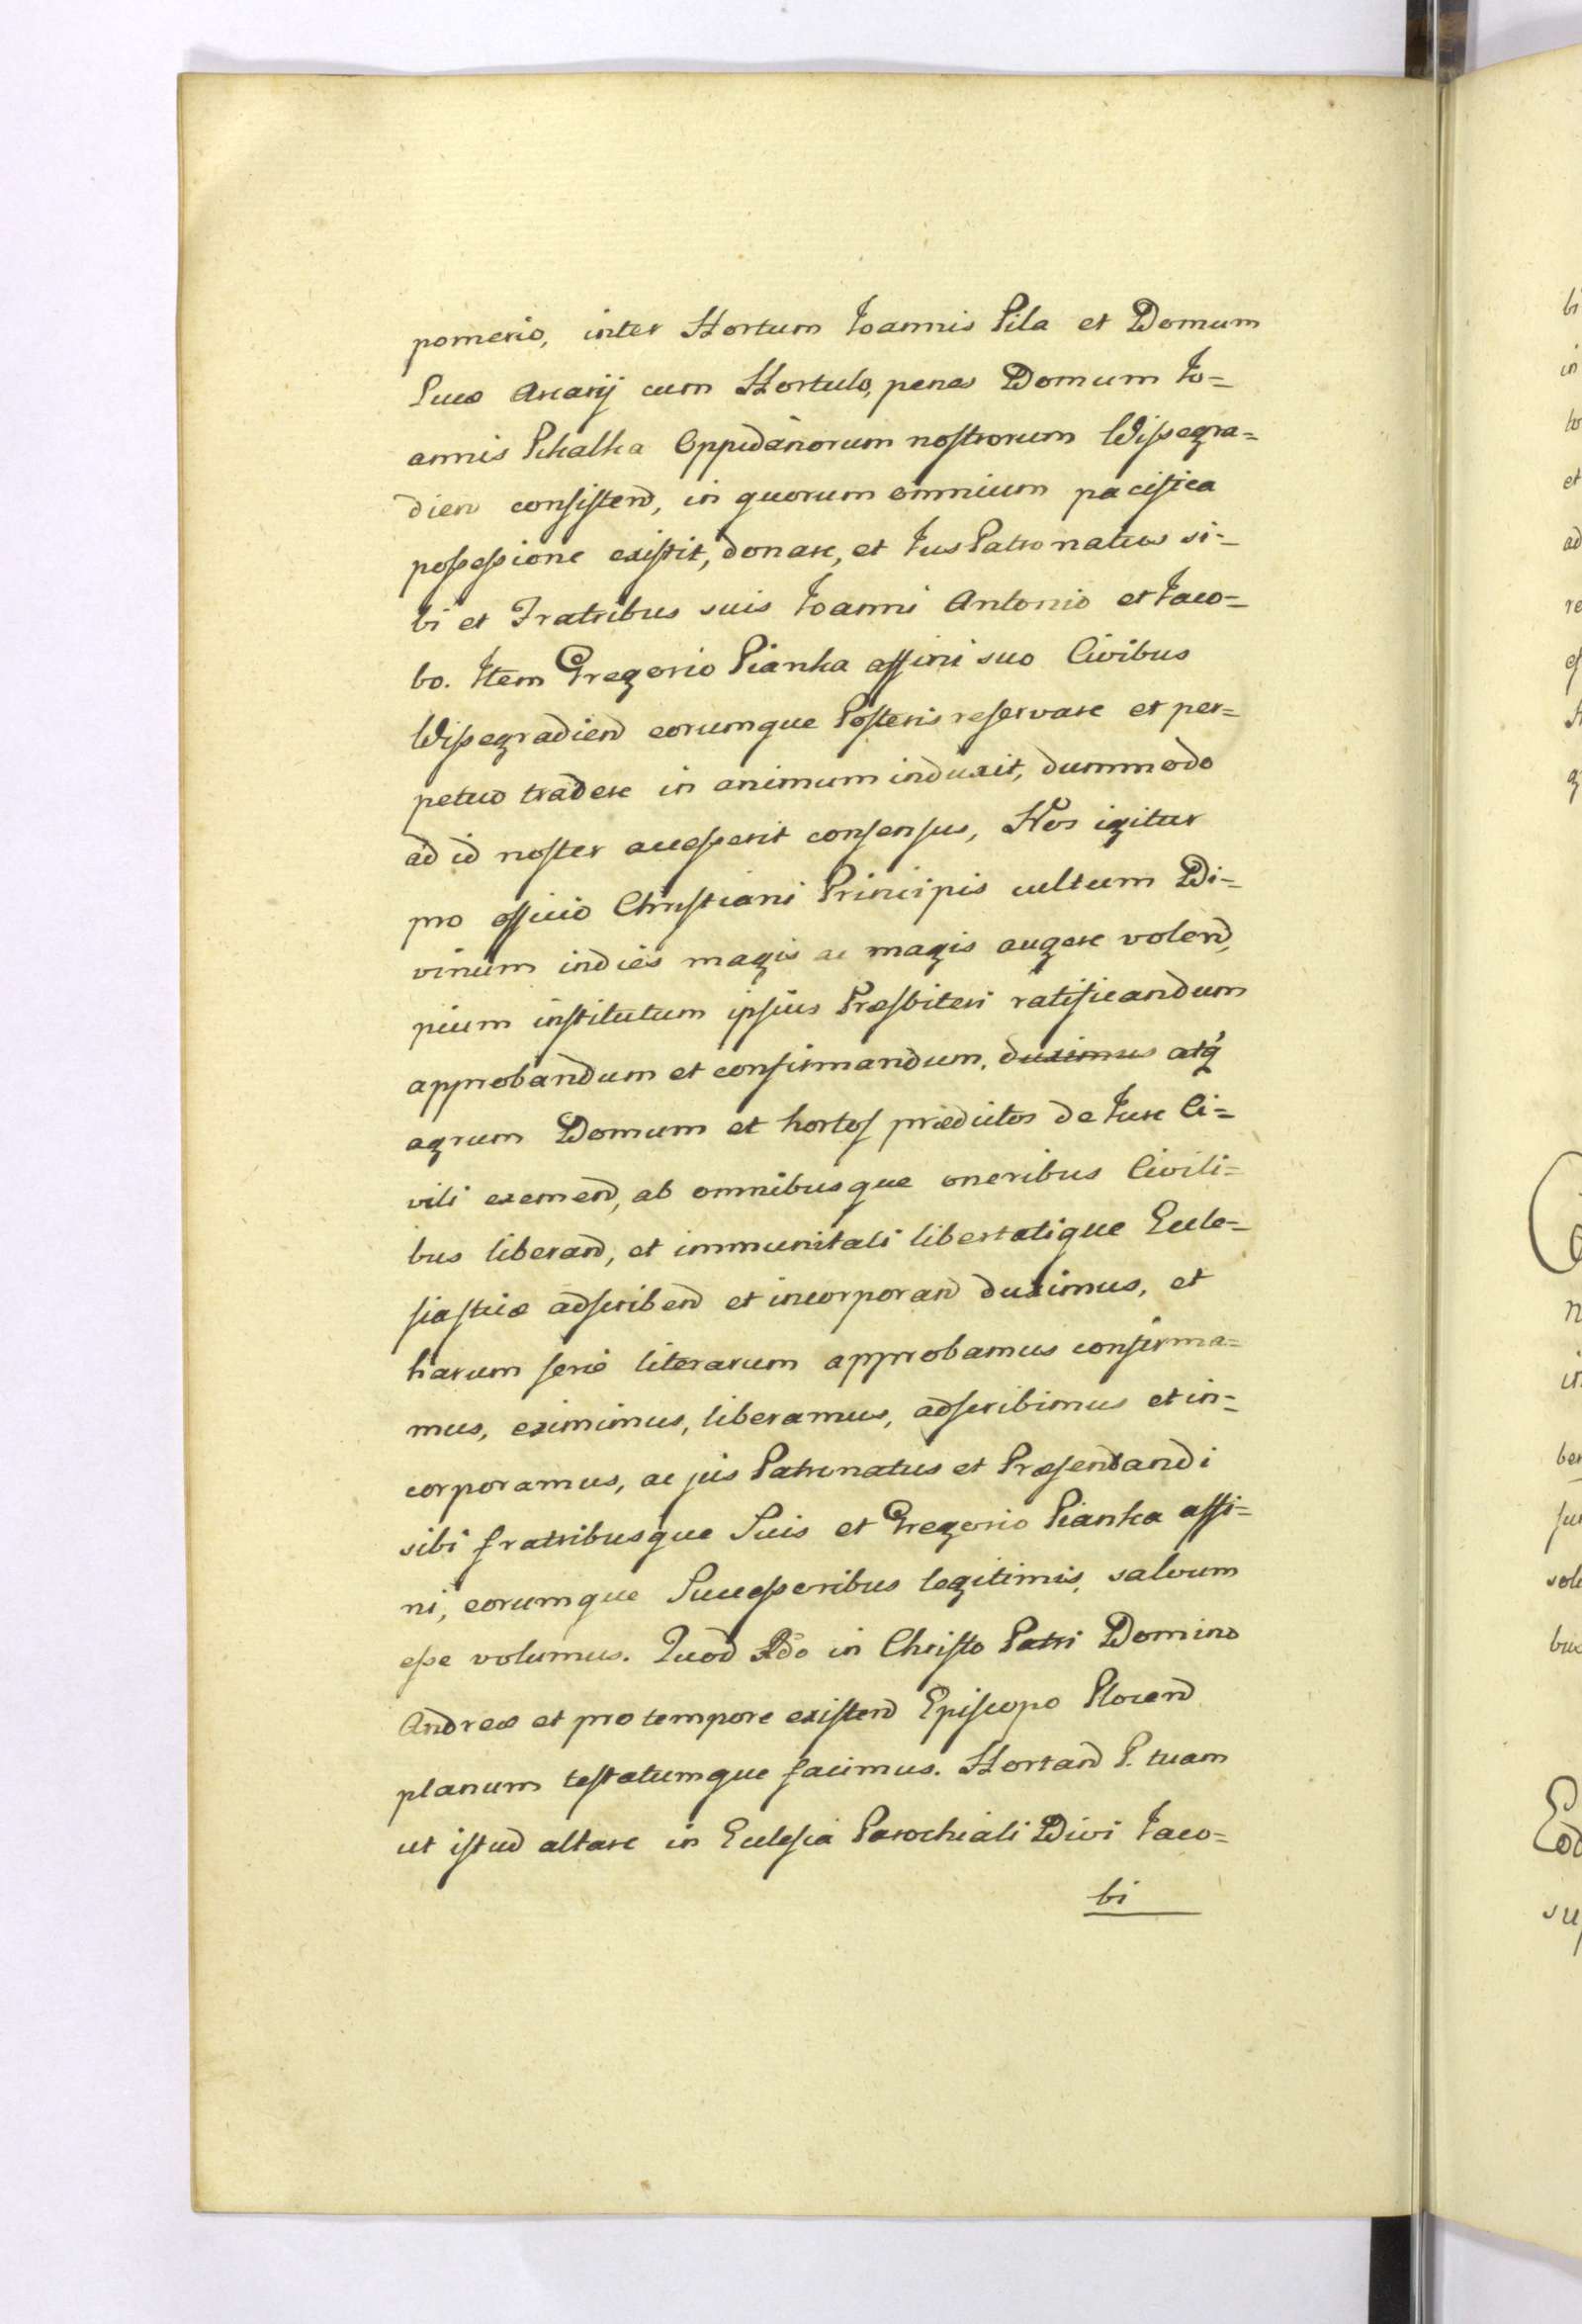 pomerio, inter Hortum Joannis Pila et Domum
Lucæ Arcarij cum Hortulo, penes Domum Jo=
annis Pchalka Oppidanorum nostrorum Wissegra=
dien consistend, in quorum omnium pacifica
possessione existit, donare, et Jus Patronatus si=
bi et Fratribus suis Joanni Antonio et Jaco=
bo. Item Gregorio Pianka affini suo Civibus
Wissegradiend eorumque Posteris reservare et per=
petuo tradere in animum induxit, dummodo
ad id noster accesserit consensus, Nos igitur
pro officio Christiani Principis cultum Di=
vinum indies magis ac magis augere volend,
pium institutum ipsius Præsbiteri ratificandum
approbandum et confirmandum, duximus atq
agrum Domum et hortos prædictos de Jure Ci=
vili eximend, ab omnibusque oneribus Civili=
bus liberand, et immunitati libertatique Eccle=
siasticæ adscribend et incorporand duximus, et
harum serie literarum approbamus confirma=
mus, eximimus, liberamus, adscribimus et in=
corporamus, ac jus Patronatus et Præsentandi
sibi fratribusque Suis et Gregorio Pianka affi=
ni, eorumque Successoribus legitimis, salvum
esse volumus. Quod Rdo in Christo Patri Domino
Andreæ et pro tempore existend Episcopo Plocend
planum testatumque facimus. Hortand P. tuam
ut istud altare in Ecclesia Parochiali Divi Jaco=
bi